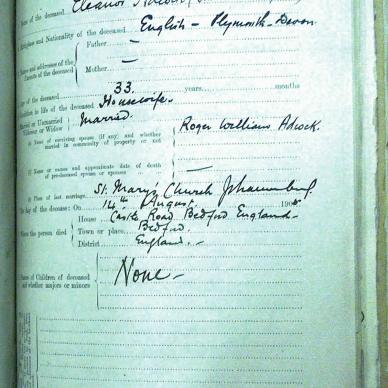 of the deceased Eleanor
and Nationality of the deceased English - Plymouth - Devon
Names and addresses of the
Parents of the deceased
Father —
Mother —
of the deceased 33 years months
in life of the deceased Housewife.
Married or Unmarried
Widower or Widow
Married.
Name of surviving spouse (if any) and whether
married in community of property or not
Roger William Adcock.
Name or names and approximate date of death
of pre-deceased spouse or spouses
—
Place of last marriage St. Mary's Church Johannesburg.
day of the decease: On 14th August. 190
House Castle Road Bedford England -
Where the person died
Town or place Bedford.
District England. -
Names of Children of deceased
and whether majors or minors
None -